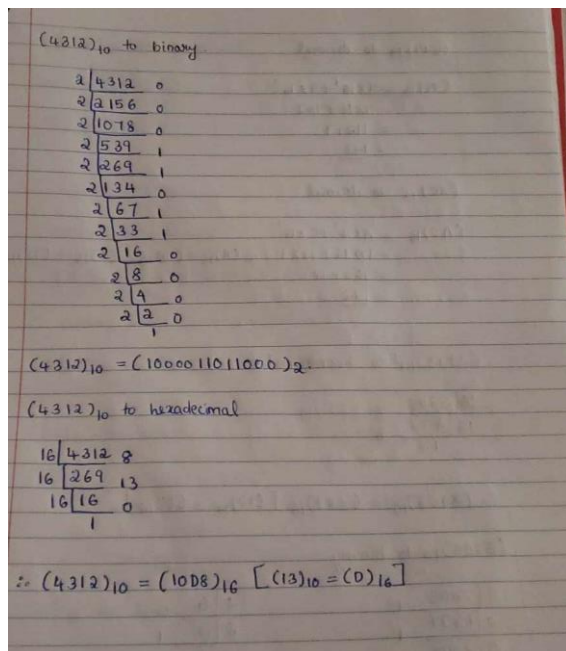 (4312)10 to binary.
2 4312 0
2 2156 0
2 1078 0
2 539 1
2 269 1
2 134 0
2 67 1
2 33 1
2 16 0
2 8 0
2 4 0
2 2 0
1
(4312)10 = (1000011011000)2.
(4312)10 to hexadecimal
16 4312 8
16 269 13
16 16 0
1
∴ (4312)10 = (10D8)16 [(13)10 = (D)16]